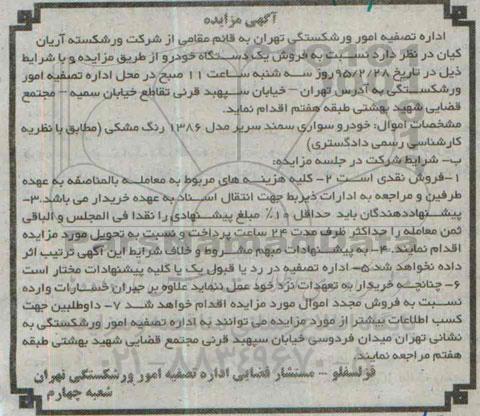 آگهی مزایده
اداره تصفیه امور ورشکستگی تهران به قائم مقامی از شرکت ورشکسته آریان
کیان در نظر دارد نسبت به فروش یک دستگاه خودرو از طریق مزایده و با شرایط
ذیل در تاریخ ۹۵/۲/۲۸ روز سه شنبه ساعت ۱۱ صبح در محل اداره تصفیه امور
ورشکستگی به آدرس تهران – خیابان سپهبد قرنی تقاطع خیابان سمیه – مجتمع
قضایی شهید بهشتی طبقه هفتم اقدام نماید.
مشخصات اموال: خودرو سواری سمند سریر مدل ۱۳۸۶ رنگ مشکی (مطابق با نظریه
کارشناسی رسمی دادگستری)
ب- شرایط شرکت در جلسه مزایده:
۱-فروش نقدی است ۲- کلیه هزینه های مربوط به معامله بالمناصفه به عهده
طرفین و مراجعه به ادارات ذیربط جهت انتقال اسناد به عهده خریدار می باشد.۳-
پیشنهاددهندگان باید حداقل ۱۰٪ مبلغ پیشنهادی را نقدا فی المجلس و الباقی
ثمن معامله را حداکثر ظرف مدت ۲۴ ساعت پرداخت و نسبت به تحویل مورد مزایده
اقدام نمایند.۴- به پیشنهادات مبهم مشروط و خلاف شرایط این آگهی ترتیب اثر
داده نخواهد شد.۵-اداره تصفیه در رد یا قبول یک یا کلیه پیشنهادات مختار است
۶- چنانچه خریدار به تعهدات نزد خود عمل ننماید علاوه بر جبران خسارات وارده
نسبت به فروش مجدد اموال مورد مزایده اقدام خواهد شد ۷- داوطلبین جهت
کسب اطلاعات بیشتر از مورد مزایده می توانند به اداره تصفیه امور ورشکستگی به
نشانی تهران میدان فردوسی خیابان سپهبد قرنی مجتمع قضایی شهید بهشتی طبقه
هفتم مراجعه نمایند.
قزلسفلو – مستشار قضایی اداره تصفیه امور ورشکستگی تهران
شعبه چهارم
۰۲۱-۸۸۳۴۹۶۷۰